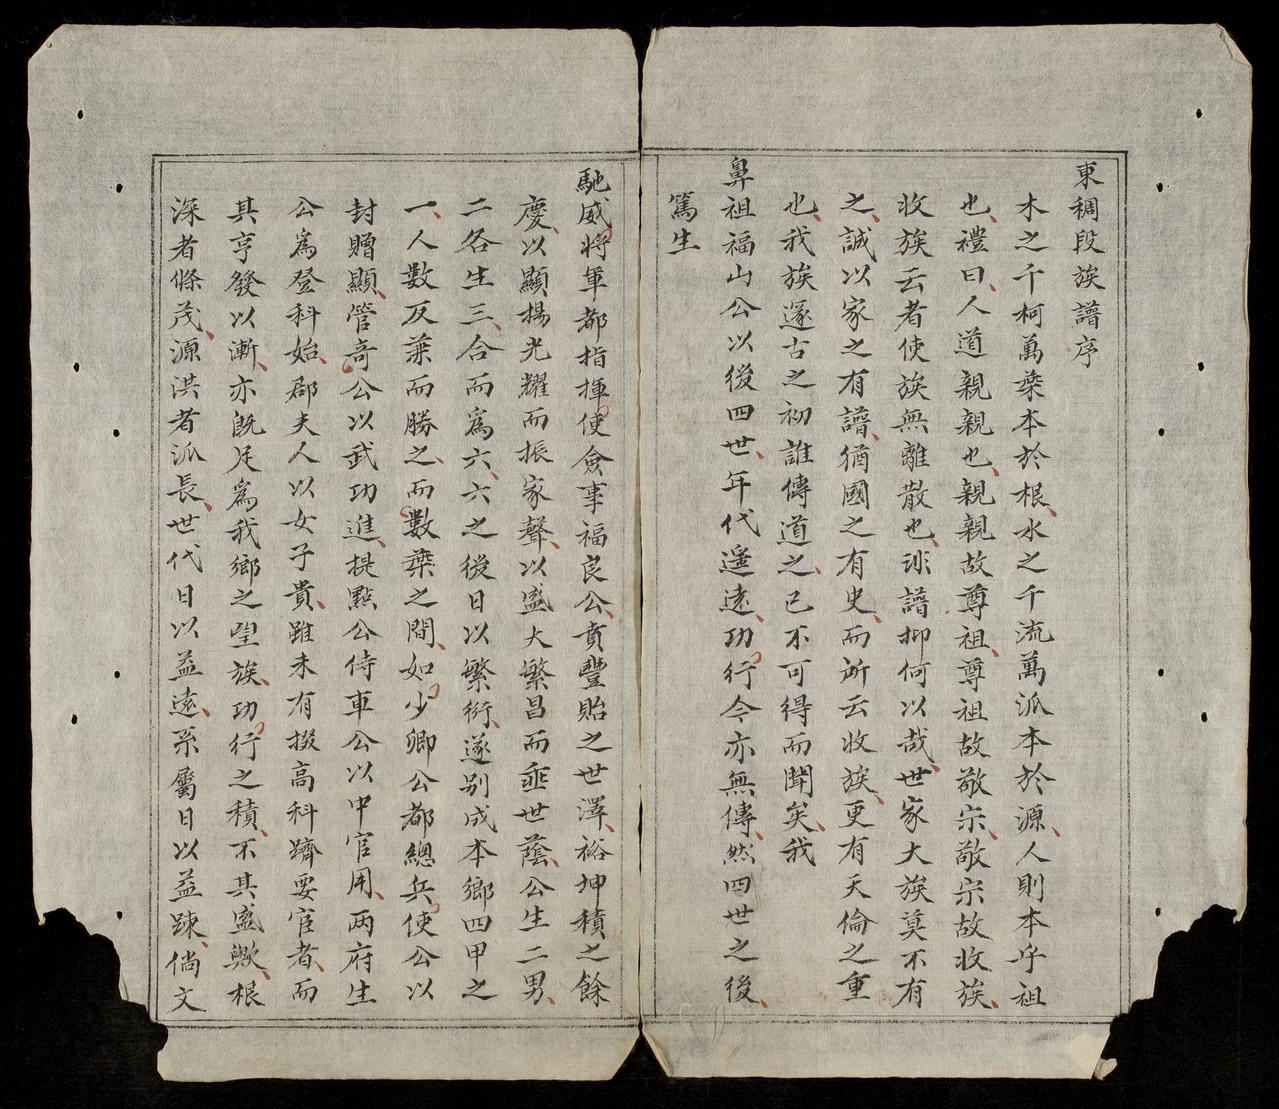 東稠段族譜序
木之千柯萬葉本於根水之千流萬派本於源人則本乎祖
也禮曰人道親親也親親故尊祖尊祖故敬宗敬宗故收族
收族云者使族無離散也涂譜抑何以哉世家大族莫不有
之誠以家之有譜猶國之有史而所云收族更有天倫之重
也我族邃古之初誰傳道之已不可得而聞矣我
鼻祖福山公以後四世年代遙遠功行今亦無傳然四世之後
篤生
馳威將軍都指揮使僉事福良公賁豐貽之世澤裕坤積之餘
慶以顯揚光耀而振家聲以盛大繁昌而垂世蔭公生二男
二各生三合而為六六之後日以繁衍遂別成本鄉四甲之
一人數反葉而勝之而數葉之間如少卿公都總兵使公以
封贈顯管奇公以武功進提點公侍車公以中官用兩府生
公為登科始郡夫人以女子貴雖未有掇高科躋要宦者而
其亨發以漸亦既足為我鄉之望族功行之積不其盛歟根
深者條茂源洪者派長世代日以益遠系屬日以益踈倘文